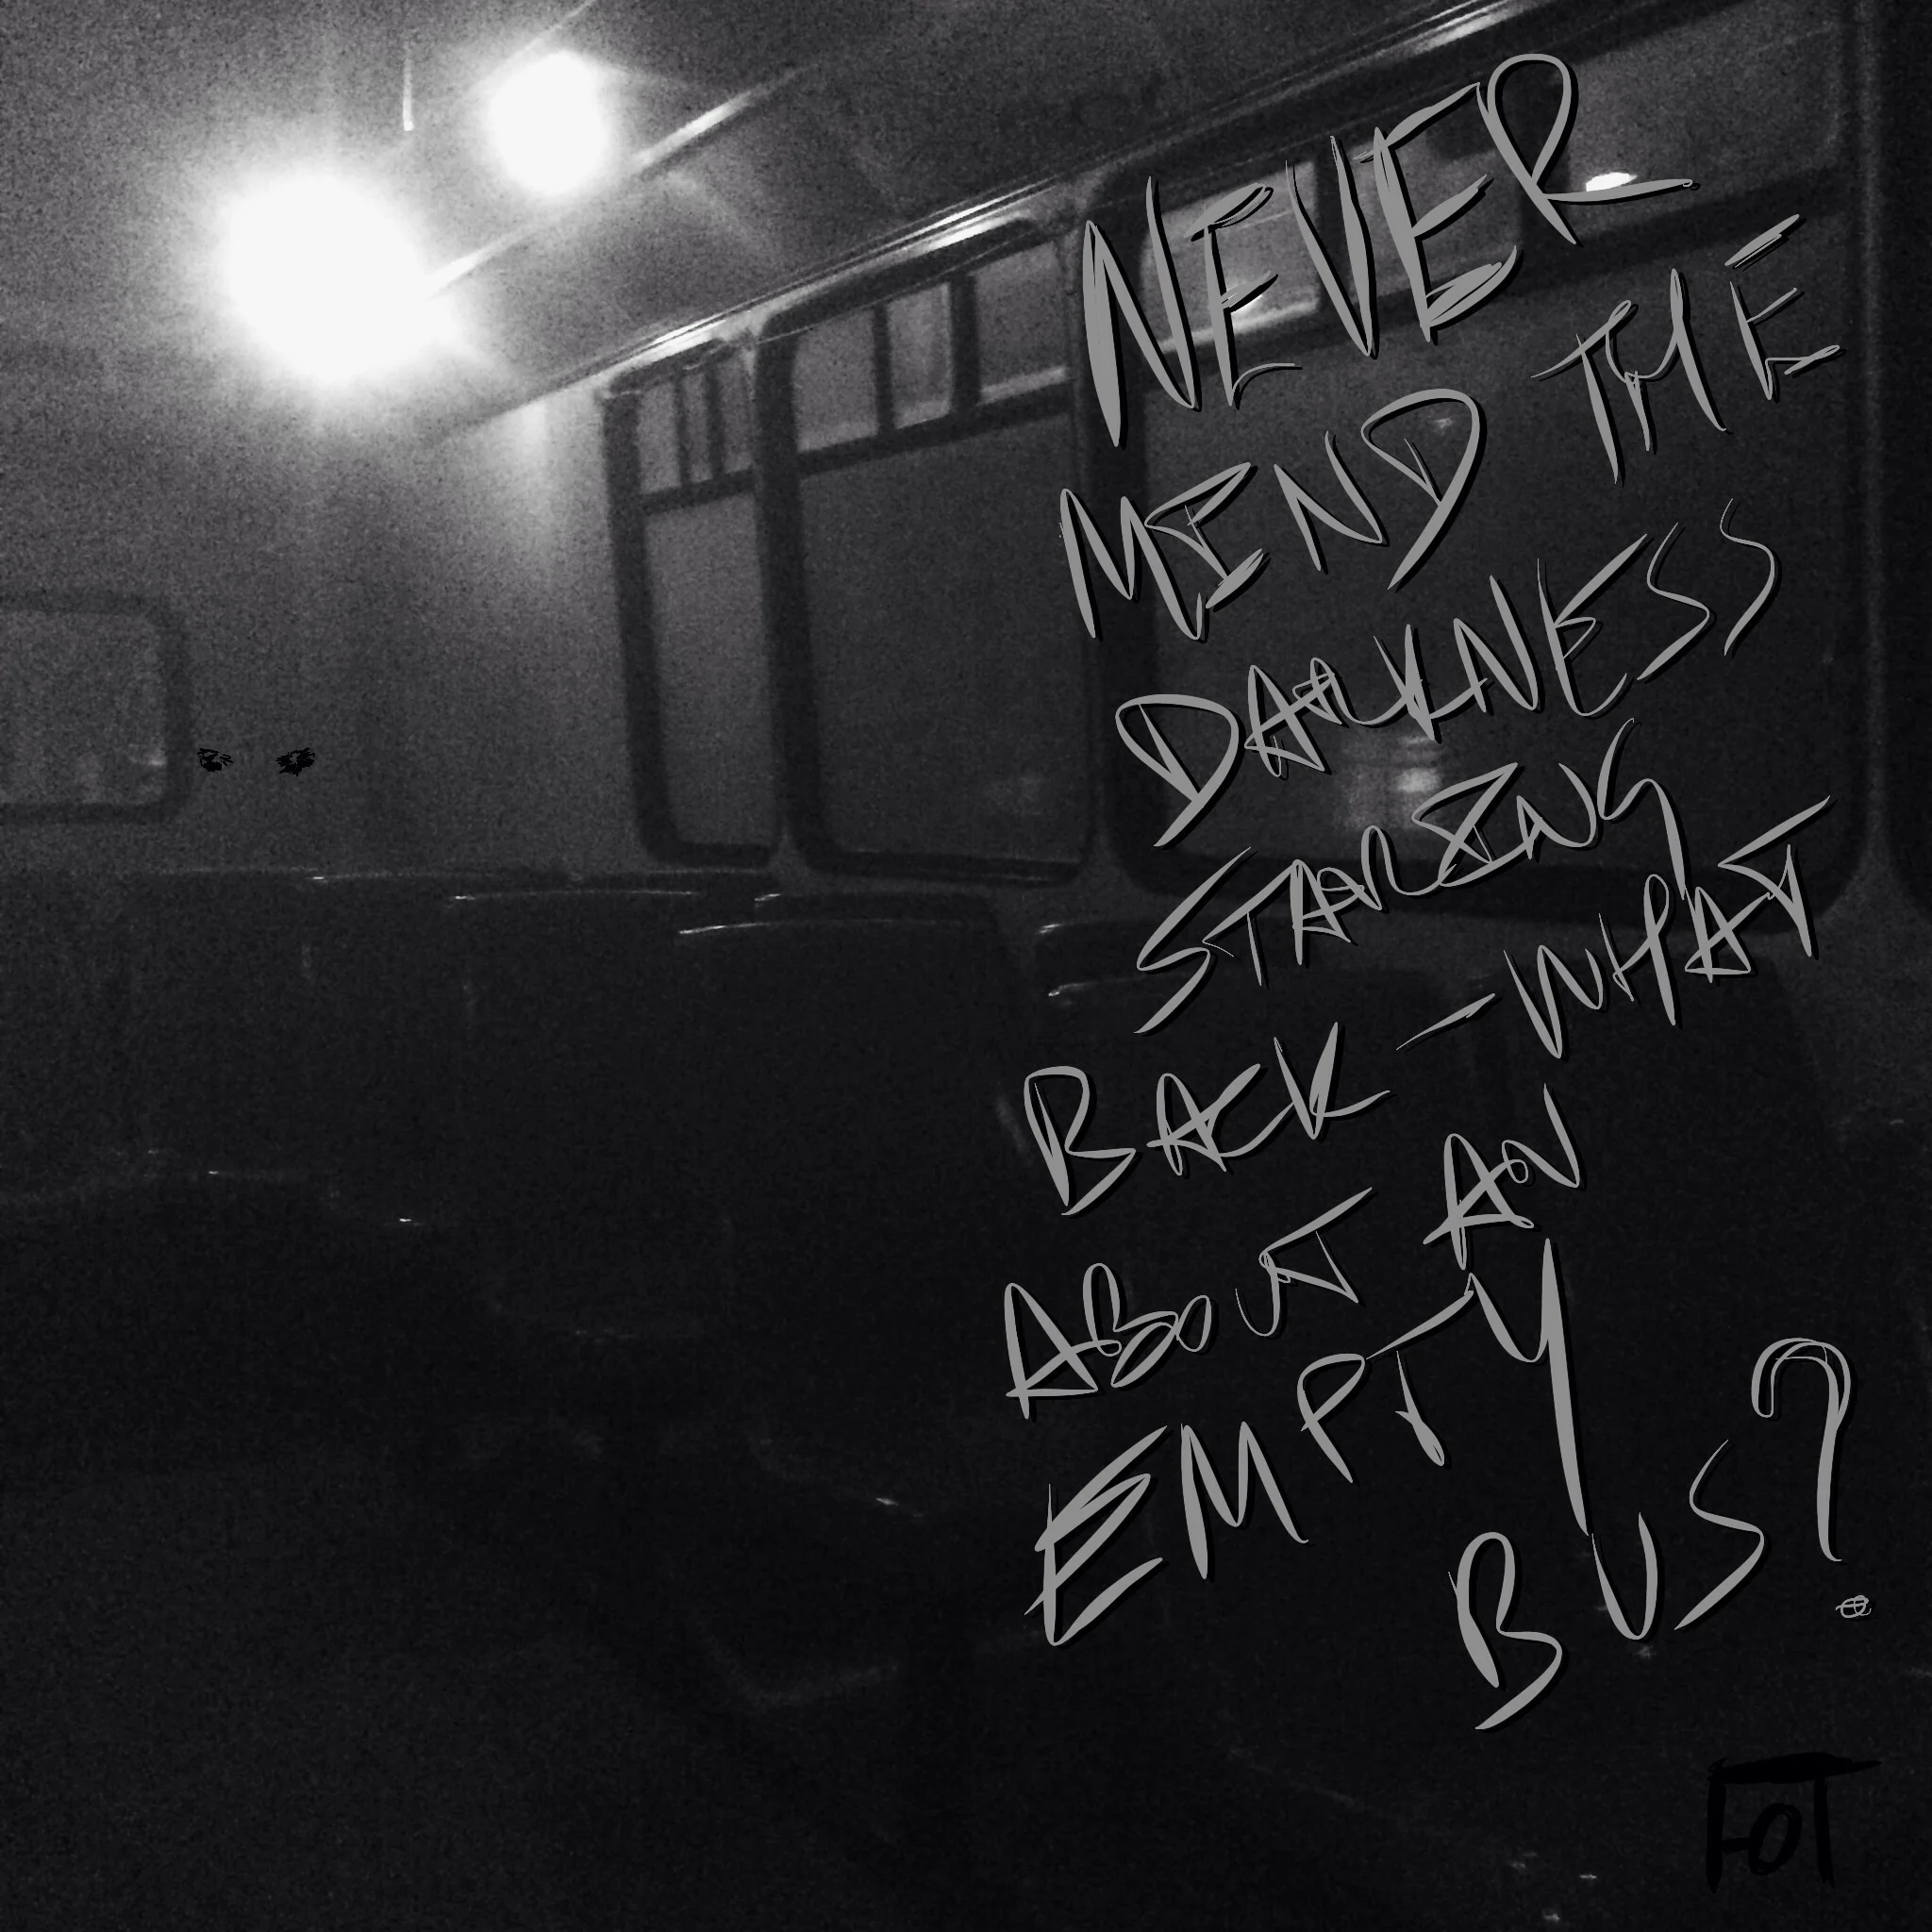 NEVER
MIND THE
DARKNESS
STARING
BACK - WHAT
ABOUT AN
EMPTY
BUS?
FOT